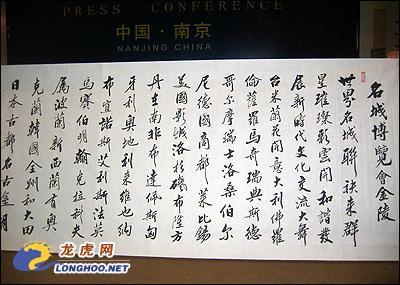 PRESS CONFERENCE
中国·南京
NANJING CHINA
名城博覽會金陵
世界名城聯袂來群
星璀璨彩雲間和諧發
展新時代文化交流大舞
台米蘭花開意大利佛羅
倫薩羅馬奇瑞典斯德
哥尔摩瑞士洛桑伯尔
尼德國商都萊比錫
美國影城洛杉磯布隆方
丹在南非布達佩斯匈
牙利奥地利來維也納
布宜諾斯艾利斯法英
馬賽伯明翰克拉科夫
屬波蘭新西蘭有奥
克蘭韓國全州和大田
日本古都名古屋明
龙虎网
LONGHOO.NET